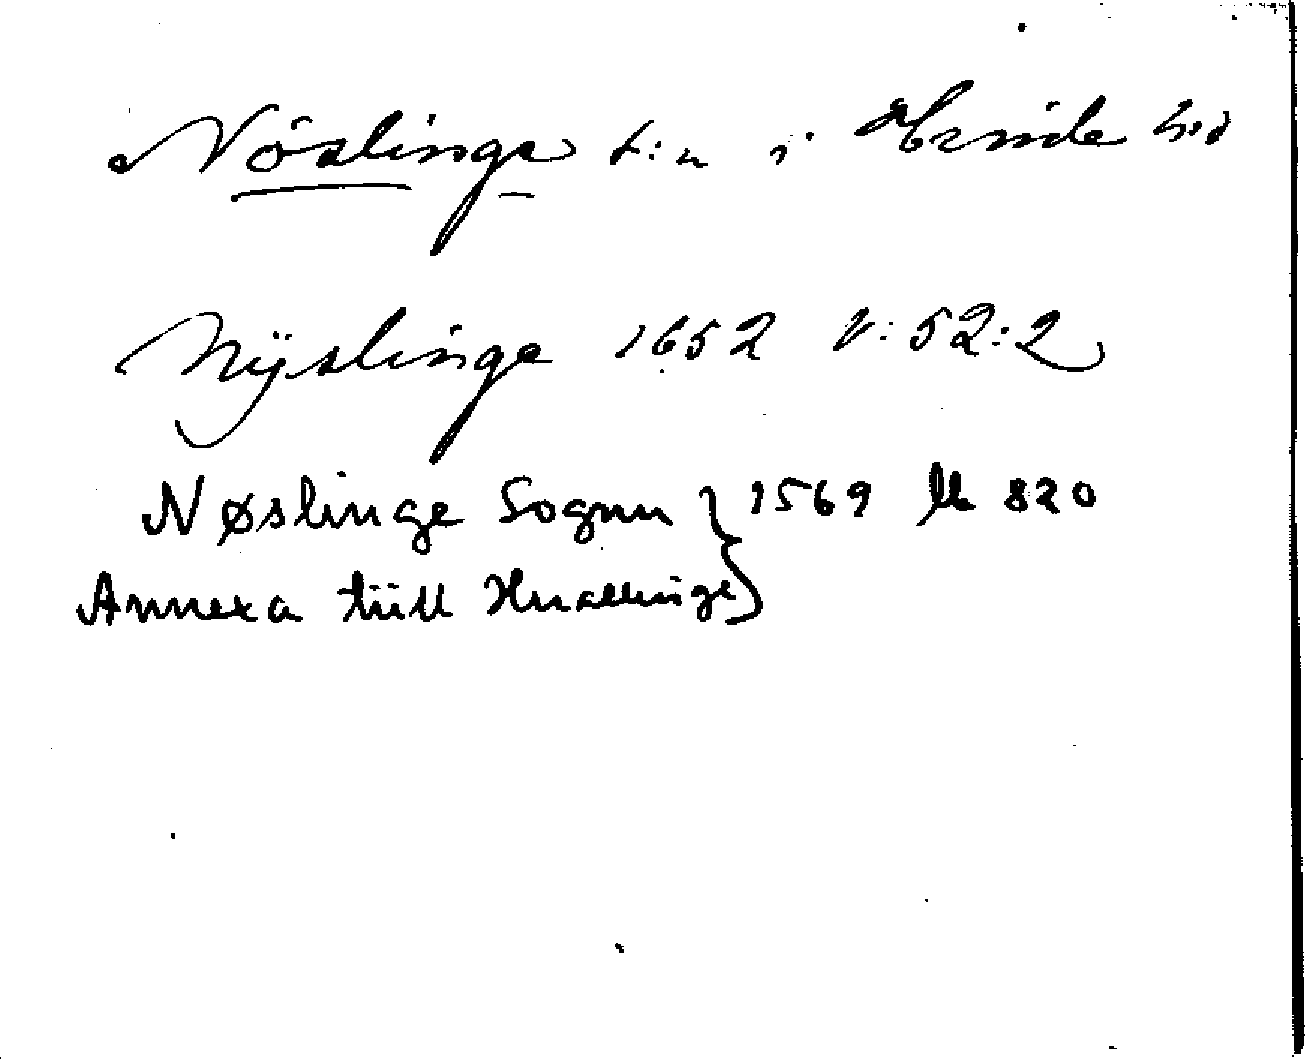 Nöslinge s:n i Himle hd
Nÿslinge 1652 V:52:2
Nøslinge Sognn } 1569 lb 820
Annexa tiill Huallinge